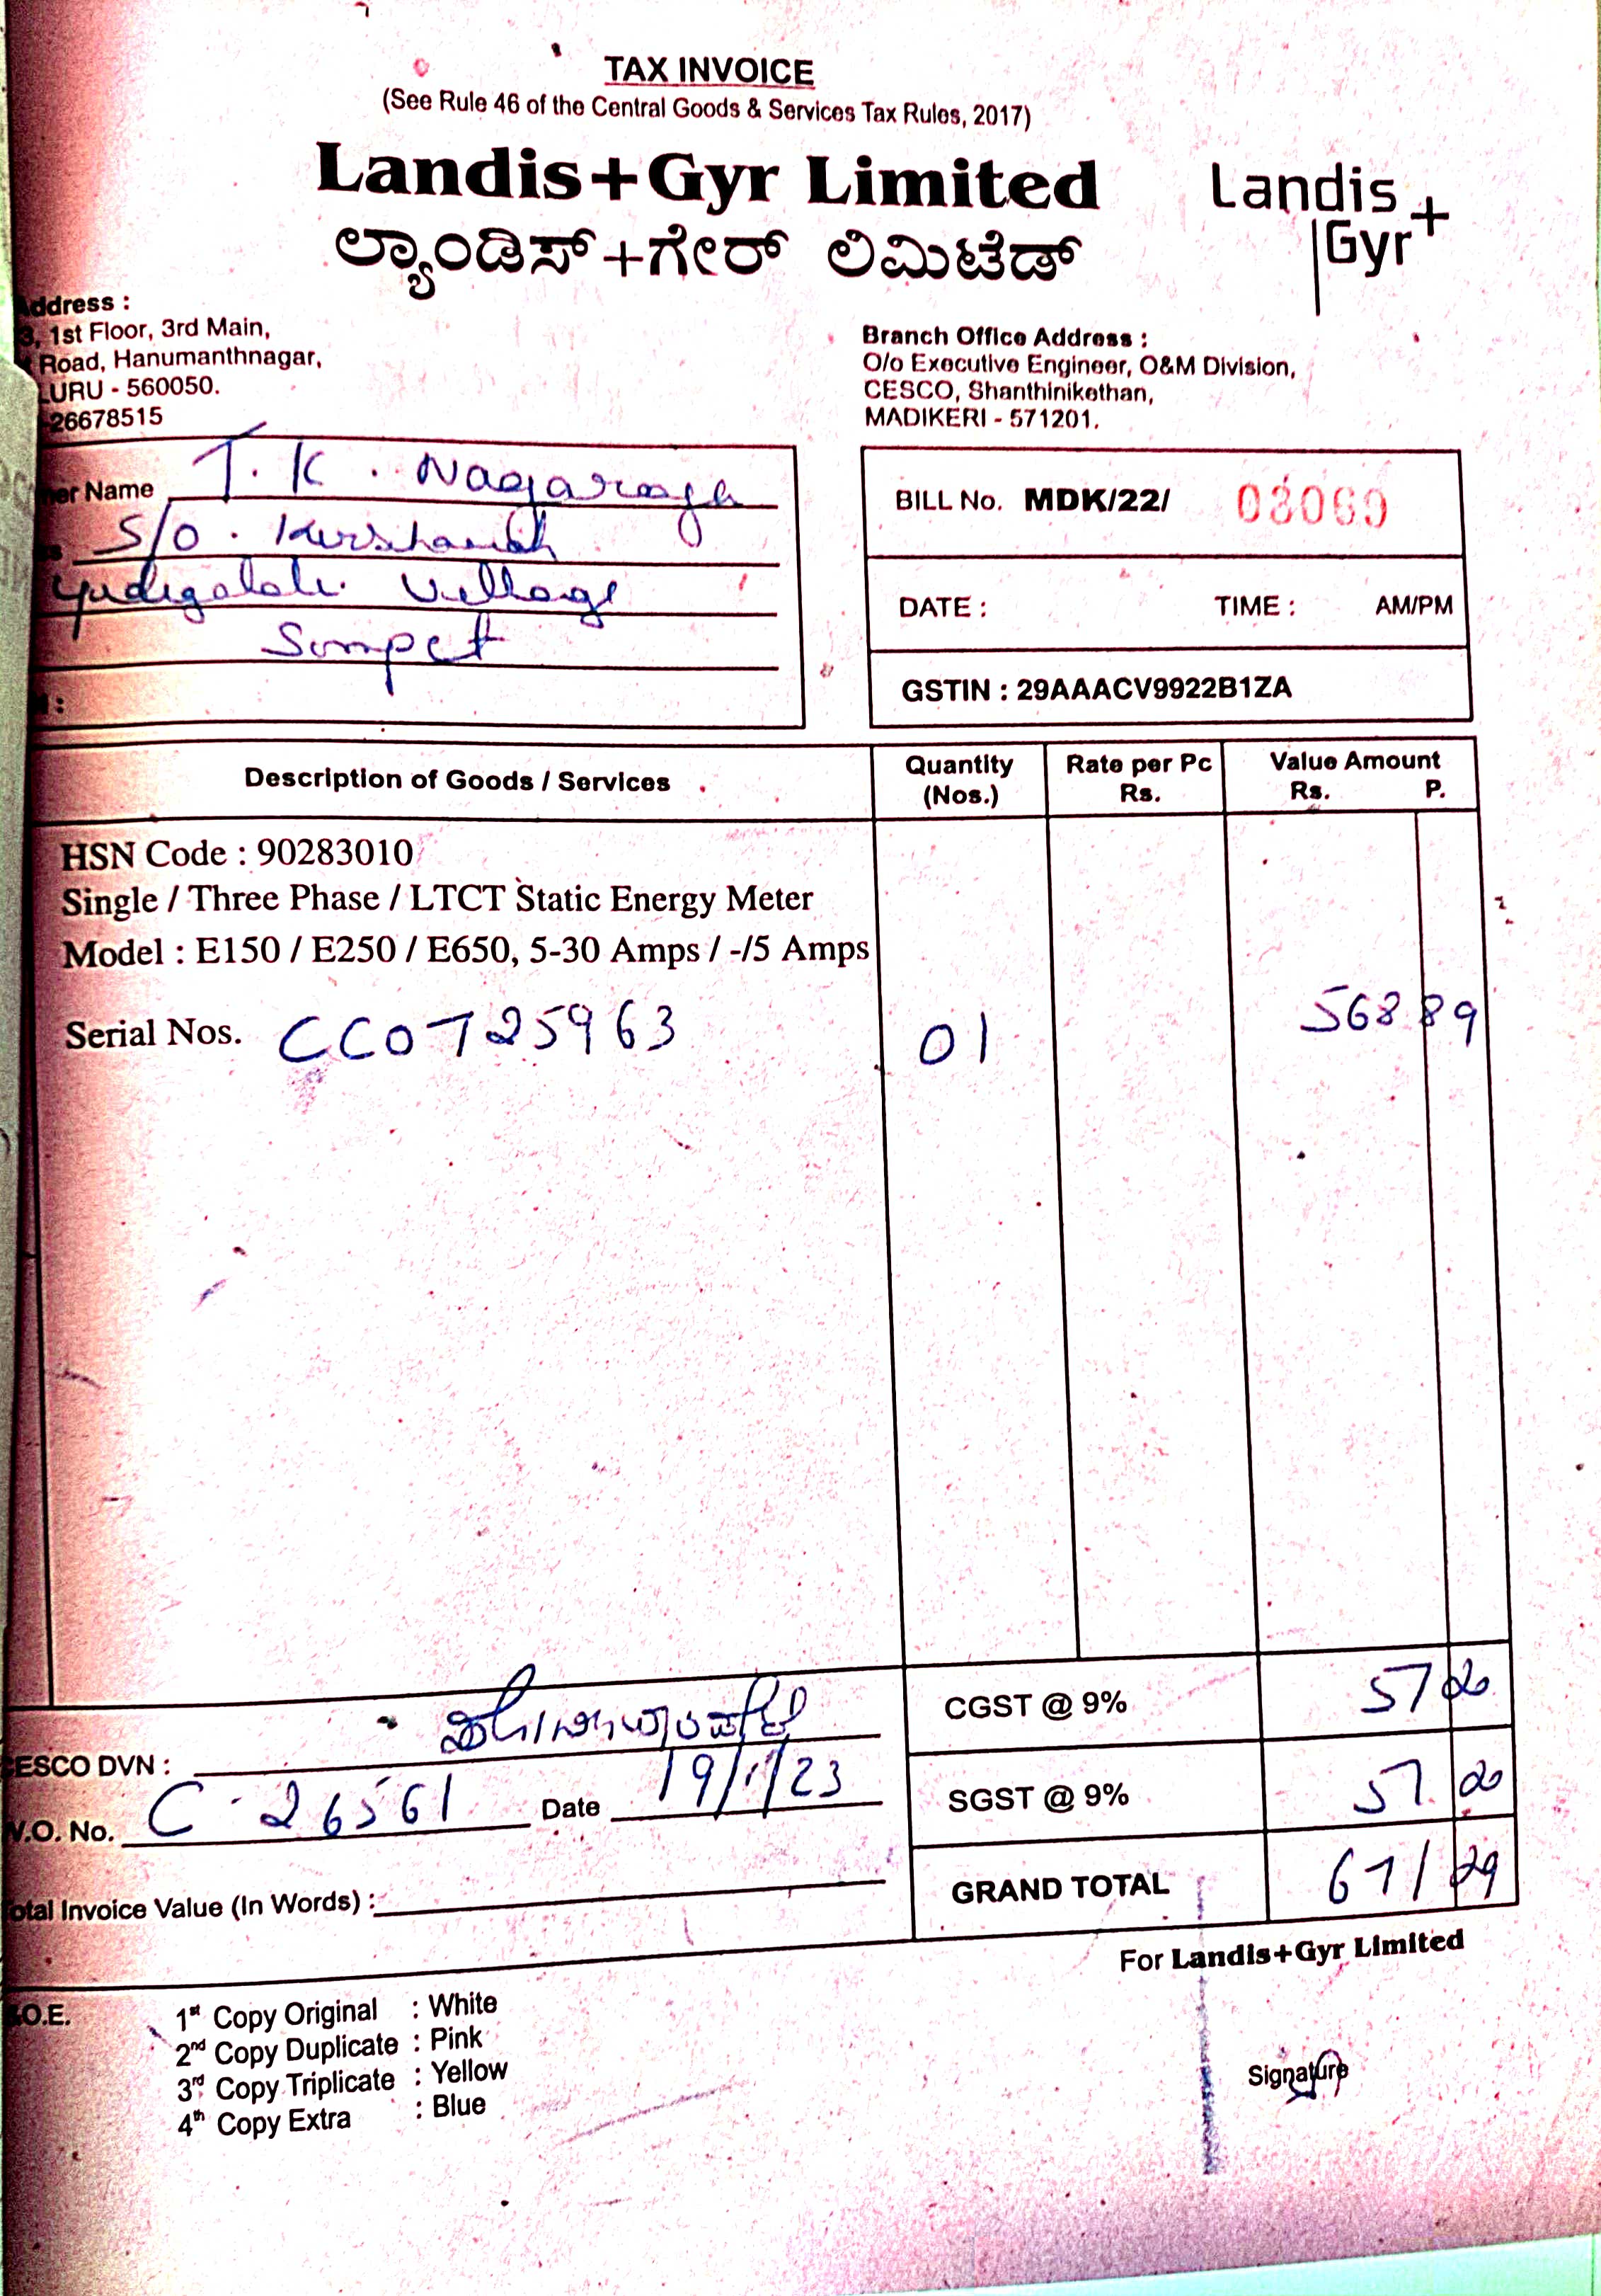 TAX INVOICE
(See Rule 46 of the Central Goods & Services Tax Rules, 2017)
Landis+Gyr Limited
ಲ್ಯಾಂಡಿಸ್+ಗೇರ್ ಲಿಮಿಟೆಡ್
Landis+
Gyr
ddress :
3, 1st Floor, 3rd Main,
Road, Hanumanthnagar,
LURU - 560050.
26678515
Branch Office Address :
O/o Executive Engineer, O&M Division,
CESCO, Shanthinikethan,
MADIKERI - 571201.
er Name T. K. Nagaraja
S/O.
Village
:
BILL No. MDK/22/ 03060
DATE : TIME : AM/PM
GSTIN : 29AAACV9922B1ZA
Description of Goods / Services Quantity (Nos.) Rate per Pc Rs. Value Amount Rs. P.
HSN Code : 90283010
Single / Three Phase / LTCT Static Energy Meter
Model : E150 / E250 / E650, 5-30 Amps / -/5 Amps
Serial Nos. CC0725963 01 568 89
CGST @ 9% 57 20
SGST @ 9% 57 20
GRAND TOTAL 671 29
ESCO DVN :
W.O. No. C 26561 Date 19/1/23
otal Invoice Value (In Words) :
For Landis+Gyr Limited
.O.E.
1st Copy Original : White
2nd Copy Duplicate : Pink
3rd Copy Triplicate : Yellow
4th Copy Extra : Blue
Signature